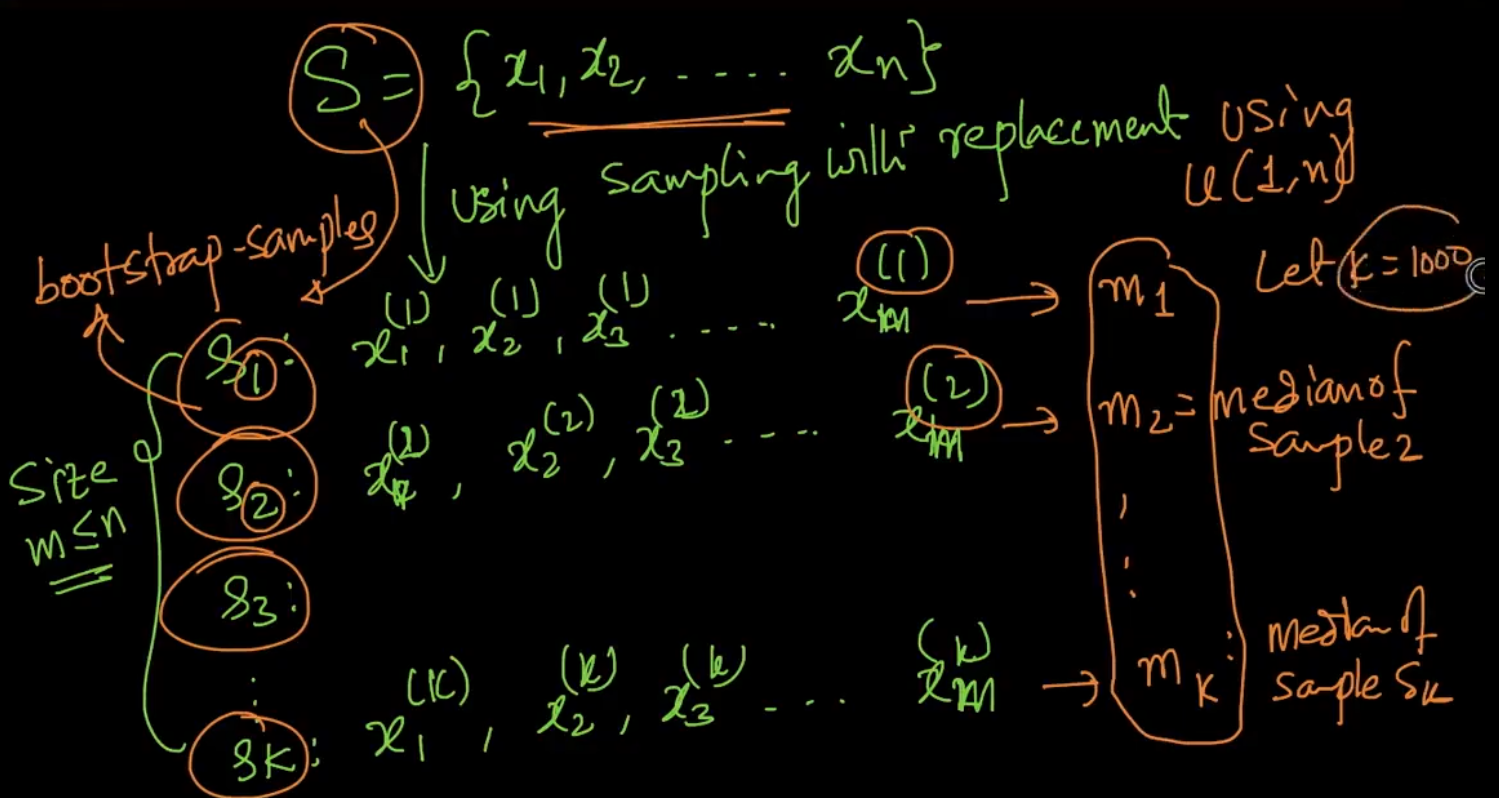 S = {x₁, x₂, ..... xₙ}
using sampling with replacment using
U(1,n)
bootstrap-samples
Let k = 1000
S₁: x₁⁽¹⁾, x₂⁽¹⁾, x₃⁽¹⁾ ..... xₘ⁽¹⁾ → m₁
S₂: x₁⁽²⁾, x₂⁽²⁾, x₃⁽²⁾ ..... xₘ⁽²⁾ → m₂ = median of
sample 2
Size
m ≤ n
S₃:
⋮
Sₖ: x₁⁽ᵏ⁾, x₂⁽ᵏ⁾, x₃⁽ᵏ⁾ .... xₘ⁽ᵏ⁾ → mₖ: median of
sample Sₖ